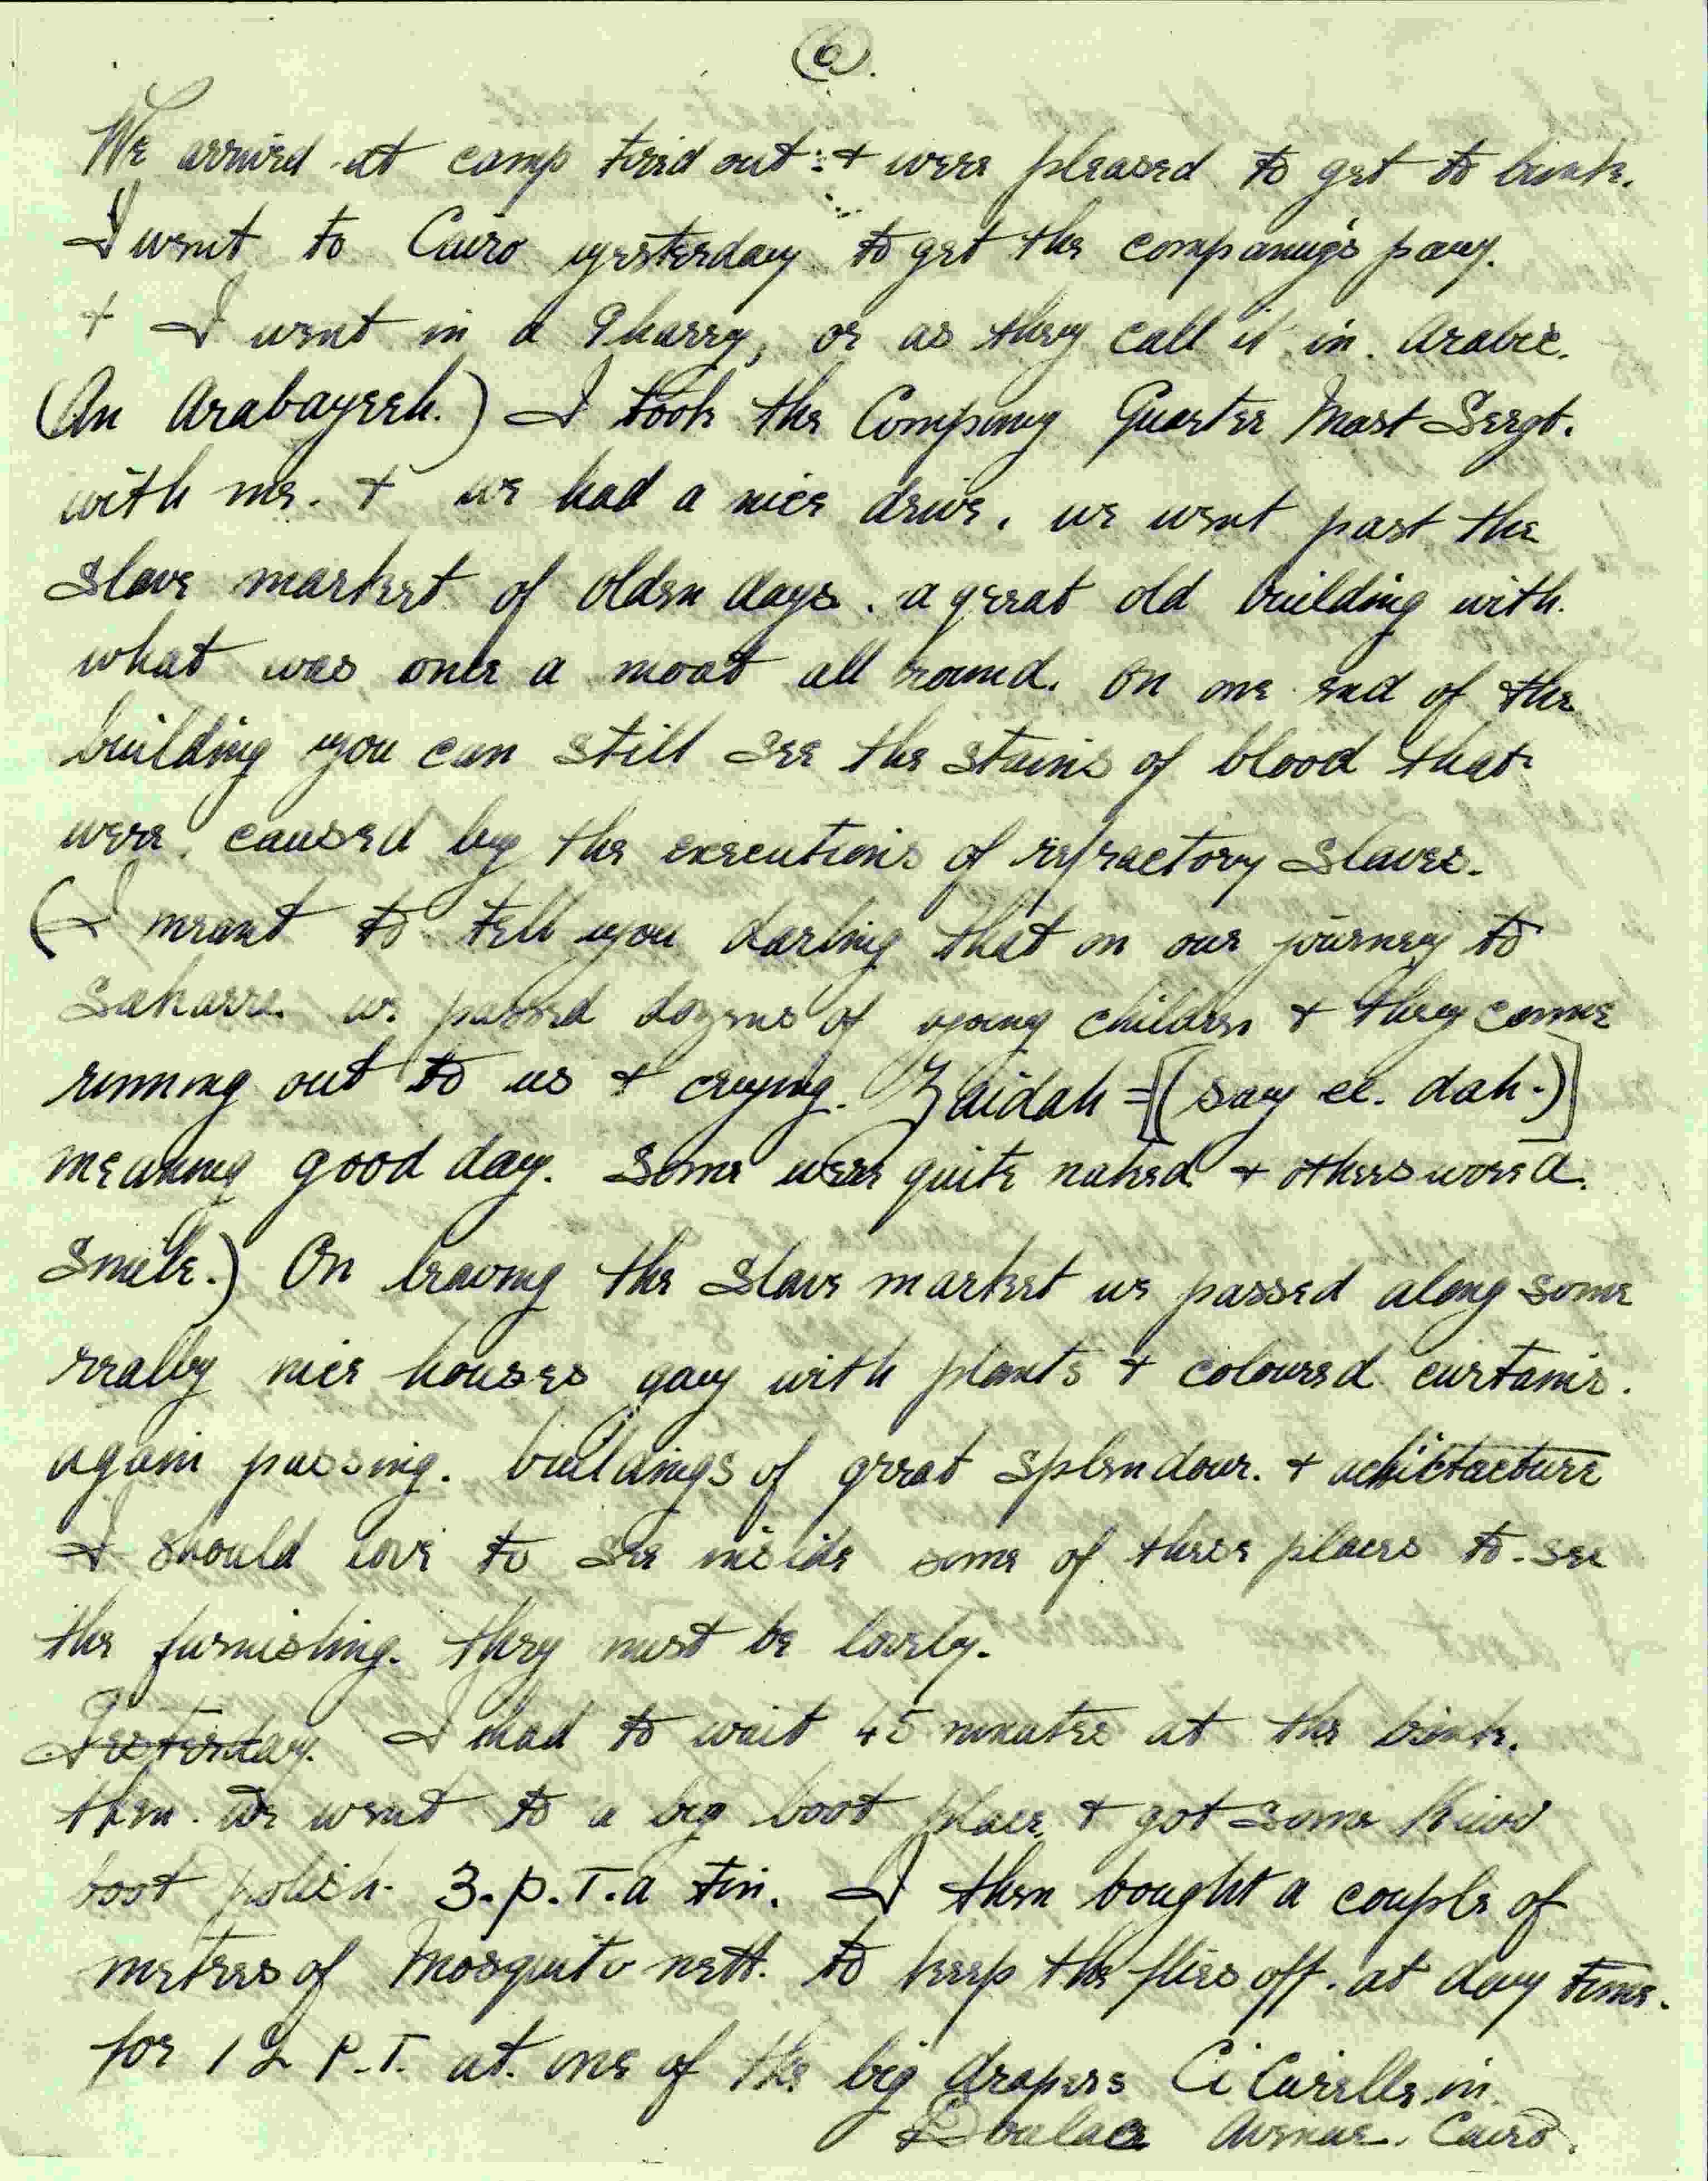 6.
We arrived at camp tired out: + were pleased to get to bunk.
I went to Cairo yesterday to get the company's pay.
+ I went in a Gharry, or as they call it in. Arabic.
(An Arabayeeh.) I took the Company Quarter Mast Sergt.
with me. + we had a nice drive. we went past the
slave market of olden days. a great old building with.
what was once a moat all round. On one end of the
building you can still see the stains of blood that
were caused by the executions of refractory slaves.
(I meant to tell you darling that on our journey to
Sakarra. we passed dozens of young children + they came
running out to us + crying. Zaidah = [(say ee. dah.)]
meaning good day. Some were quite naked + others wore a.
Smile.) On leaving the slave market we passed along some
really nice houses gay with plants + coloured curtains.
again passing. buildings of great splendour. + achictacture
I should love to see inside some of these places to see
the furnishing. they must be lovely.
Yesterday. I had to wait 45 minutes at the bank.
then. we went to a big boot place + got some Kiwi
boot polish. 3.P.T. a tin. I then bought a couple of
metres of Mosquito nett. to keep the flies off. at day time.
for 12 P.T. at. one of the big drapers Cicurells. in.
Boulace Avenue. Cairo.